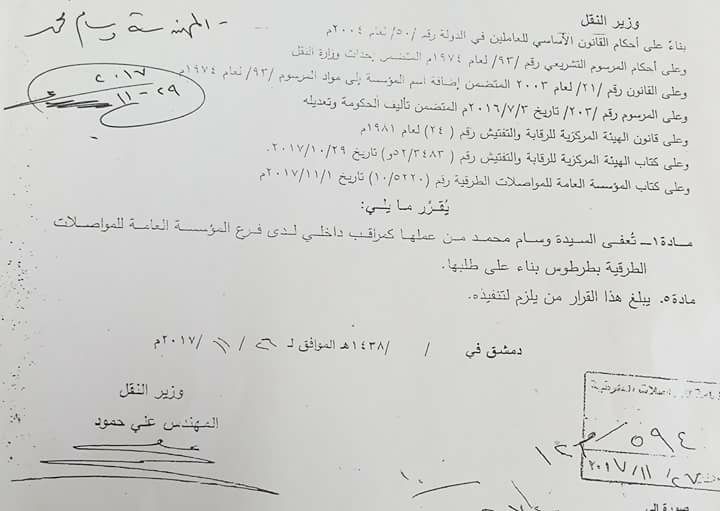 - المهندسة وسام محمد
٢٠١٧
٢٩-١١
وزير النقل
بناءً على أحكام القانون الأساسي للعاملين في الدولة رقم /٥٠/ لعام ٢٠٠٤م
وعلى أحكام المرسوم التشريعي رقم /٩٣/ لعام ١٩٧٤م المتضمن إحداث وزارة النقل
وعلى القانون رقم /٢١/ لعام ٢٠٠٣ المتضمن إضافة اسم المؤسسة إلى مواد المرسوم /٩٣/ لعام ١٩٧٤م
وعلى المرسوم رقم /٢٠٣/ تاريخ ٢٠١٦/٧/٣م المتضمن تأليف الحكومة وتعديله
وعلى قانون الهيئة المركزية للرقابة والتفتيش رقم ( ٢٤) لعام ١٩٨١م
وعلى كتاب الهيئة المركزية للرقابة والتفتيش رقم ( ٥٢/٣٤٨٣و) تاريخ ٢٠١٧/١٠/٢٩.
وعلى كتاب المؤسسة العامة للمواصلات الطرقية رقم (١٠/٥٢٢٠) تاريخ ٢٠١٧/١١/١م
يُقرَّر ما يلي:
مادة١ــ تُعفى السيدة وسام محمد من عملها كمراقب داخلي لدى فرع المؤسسة العامة للمواصلات
الطرقية بطرطوس بناء على طلبها.
مادة٥. يبلغ هذا القرار من يلزم لتنفيذه.
دمشق في / /١٤٣٨هـ الموافق لـ ٢٦/ ١١ /٢٠١٧م
وزير النقل
المهندس علي حمود
٥٩٤
٢٠١٧/١١/٢٧
صورة إلى